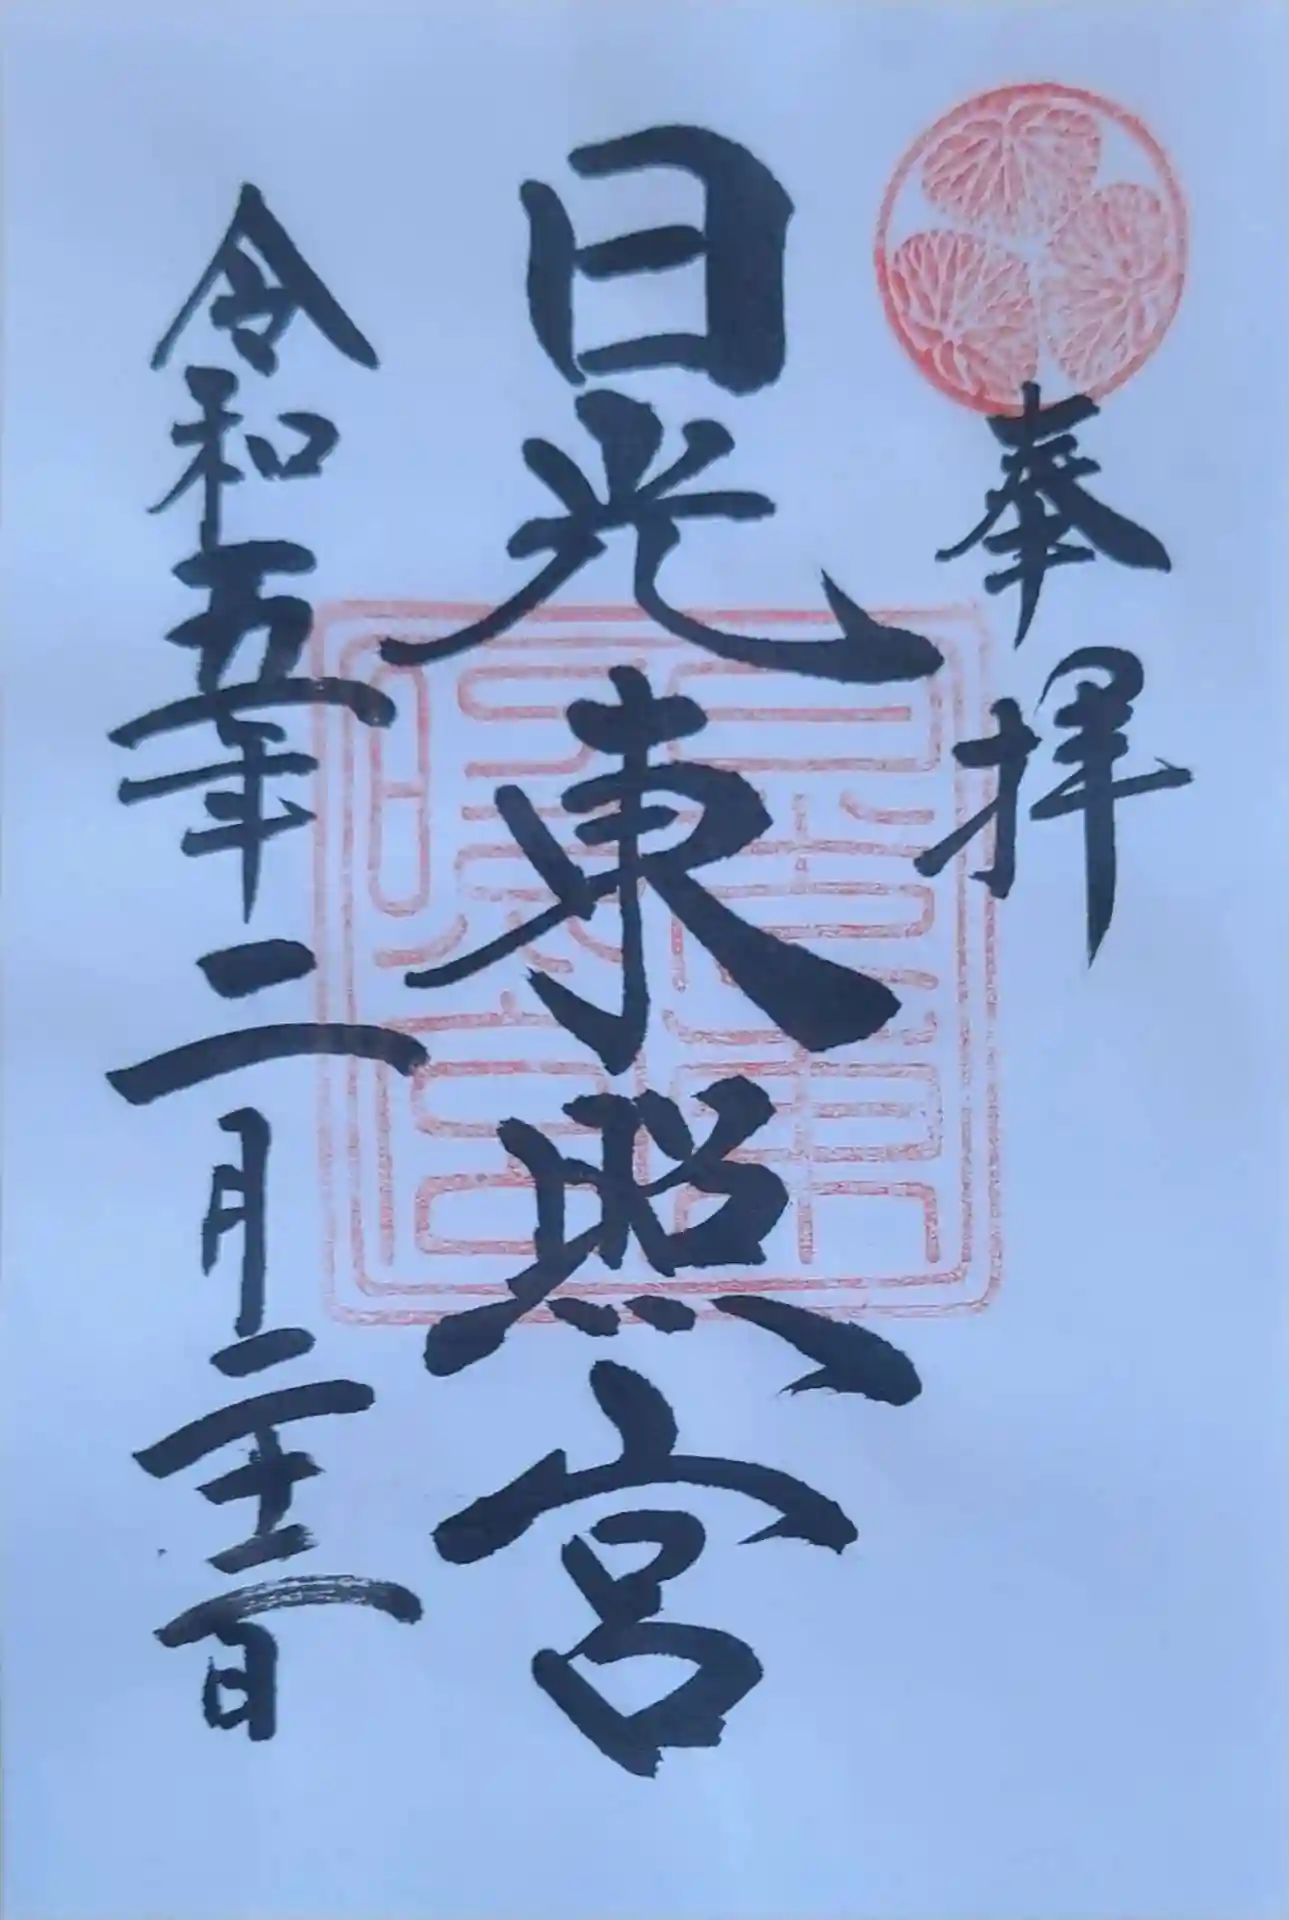 奉拝
日光東照宮
令和五年二月二十二日